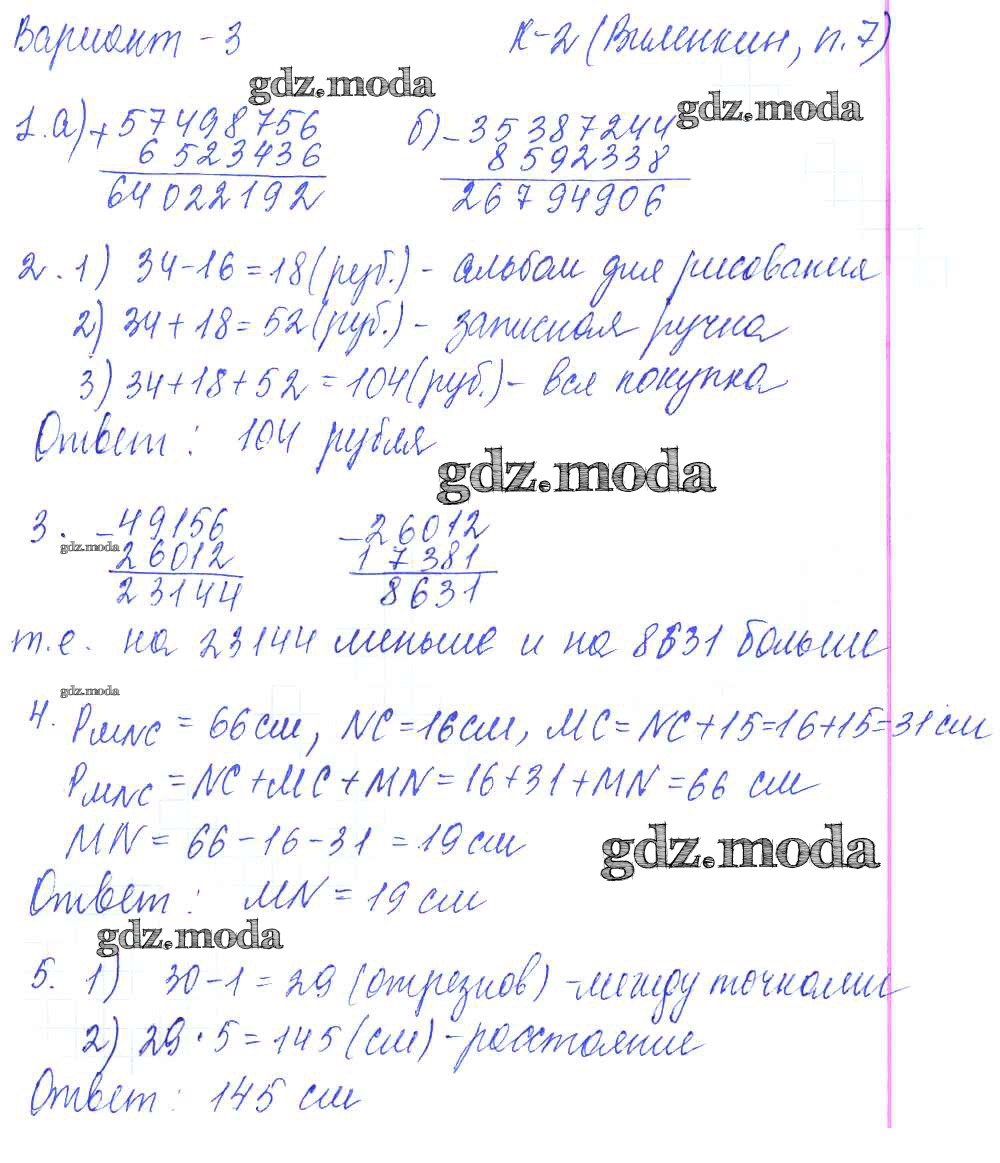 Вариант - 3 К-2 (Виленкин, п.7)
gdz.moda
gdz.moda
1. а) + 57498756 б) - 35387244
6523436 8592338
64022192 26794906
2. 1) 34-16=18(руб.) - альбом для рисования
2) 34+18=52(руб.) - записная ручка
3) 34+18+52=104(руб.) - вся покупка
Ответ: 104 рубля
gdz.moda
3. - 49156 - 26012
gdz.moda
26012 17381
23144 8631
т.е. на 23144 меньше и на 8631 больше
gdz.moda
4. PMNC = 66 см, NC=16см, MC=NC+15=16+15=31 см
PMNC = NC+MC+MN=16+31+MN=66 см
MN = 66-16-31 = 19 см
gdz.moda
Ответ: MN = 19 см
gdz.moda
5. 1) 30-1=29 (отрезков) - между точками
2) 29·5=145 (см) - расстояние
Ответ: 145 см